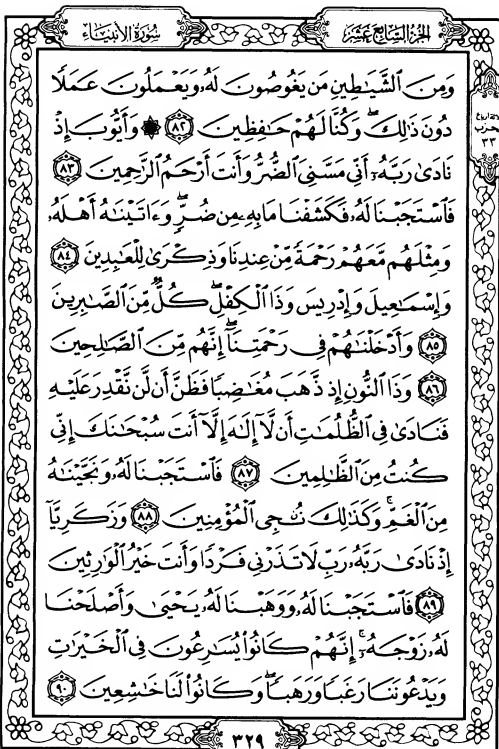 الجزء السابع عشر
سورة الأنبياء
وَمِنَ الشَّيَٰطِينِ مَن يَغُوصُونَ لَهُۥ وَيَعْمَلُونَ عَمَلًا
دُونَ ذَٰلِكَۖ وَكُنَّا لَهُمْ حَٰفِظِينَ ٨٢ ۞ وَأَيُّوبَ إِذْ
نَادَىٰ رَبَّهُۥٓ أَنِّى مَسَّنِىَ الضُّرُّ وَأَنتَ أَرْحَمُ الرَّٰحِمِينَ ٨٣
فَاسْتَجَبْنَا لَهُۥ فَكَشَفْنَا مَا بِهِۦ مِن ضُرٍّۖ وَءَاتَيْنَٰهُ أَهْلَهُۥ
وَمِثْلَهُم مَّعَهُمْ رَحْمَةً مِّنْ عِندِنَا وَذِكْرَىٰ لِلْعَٰبِدِينَ ٨٤
وَإِسْمَٰعِيلَ وَإِدْرِيسَ وَذَا الْكِفْلِۖ كُلٌّ مِّنَ الصَّٰبِرِينَ
٨٥ وَأَدْخَلْنَٰهُمْ فِى رَحْمَتِنَآۖ إِنَّهُم مِّنَ الصَّٰلِحِينَ
٨٦ وَذَا النُّونِ إِذ ذَّهَبَ مُغَٰضِبًا فَظَنَّ أَن لَّن نَّقْدِرَ عَلَيْهِ
فَنَادَىٰ فِى الظُّلُمَٰتِ أَن لَّآ إِلَٰهَ إِلَّآ أَنتَ سُبْحَٰنَكَ إِنِّى
كُنتُ مِنَ الظَّٰلِمِينَ ٨٧ فَاسْتَجَبْنَا لَهُۥ وَنَجَّيْنَٰهُ
مِنَ الْغَمِّۚ وَكَذَٰلِكَ نُۨجِى الْمُؤْمِنِينَ ٨٨ وَزَكَرِيَّآ
إِذْ نَادَىٰ رَبَّهُۥ رَبِّ لَا تَذَرْنِى فَرْدًا وَأَنتَ خَيْرُ الْوَٰرِثِينَ
٨٩ فَاسْتَجَبْنَا لَهُۥ وَوَهَبْنَا لَهُۥ يَحْيَىٰ وَأَصْلَحْنَا
لَهُۥ زَوْجَهُۥٓۚ إِنَّهُمْ كَانُوا۟ يُسَٰرِعُونَ فِى الْخَيْرَٰتِ
وَيَدْعُونَنَا رَغَبًا وَرَهَبًاۖ وَكَانُوا۟ لَنَا خَٰشِعِينَ ٩٠
حزب
٣٣
٣٢٩